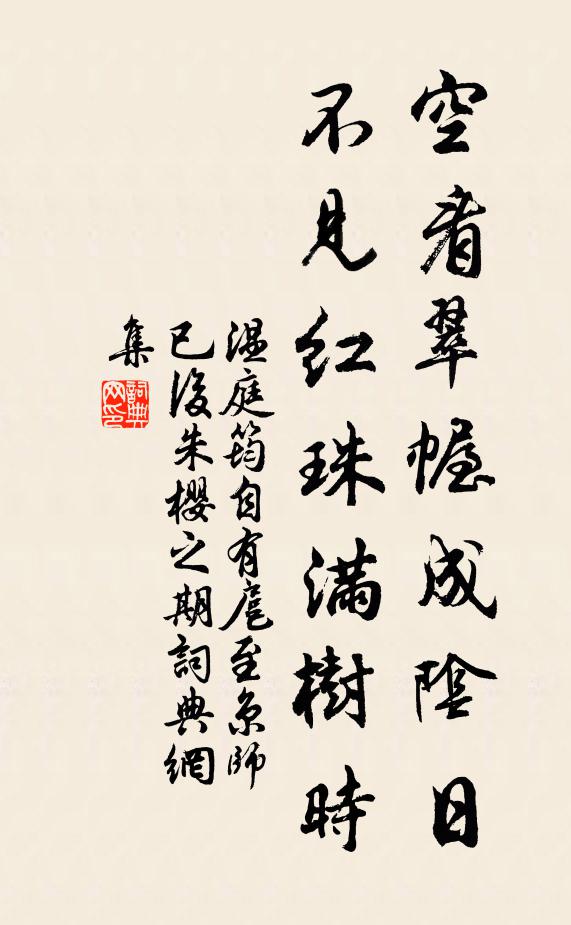 空看翠幄成陰日
不見紅珠滿樹時
溫庭筠自有扈至京師
已後朱櫻之期詞典網
集
詞典
网印